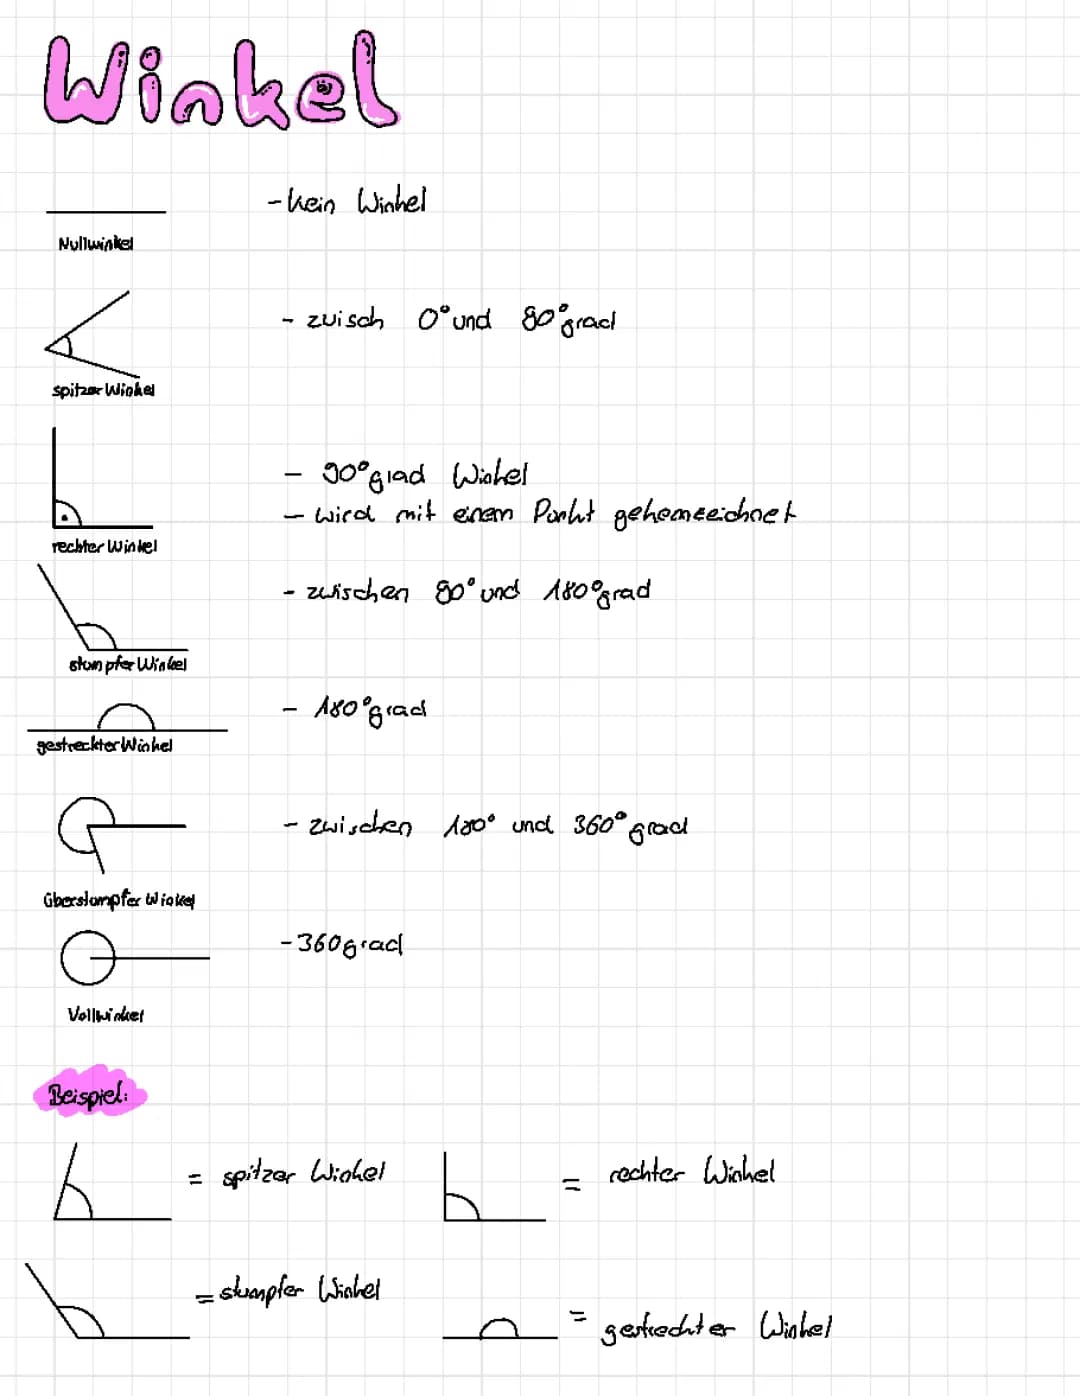 Winkel
- kein Winkel
Nullwinkel
- zwisch 0° und 80° grad
spitzer Winkel
- 90° grad Winkel
- wird mit einem Punkt gekennzeichnet
rechter Winkel
- zwischen 80° und 180° grad
stumpfer Winkel
- 180° grad
gestreckter Winkel
- zwischen 180° und 360° grad
überstumpfer Winkel
- 360 grad
Vollwinkel
Beispiel:
= spitzer Winkel = rechter Winkel
= stumpfer Winkel = gestreckter Winkel